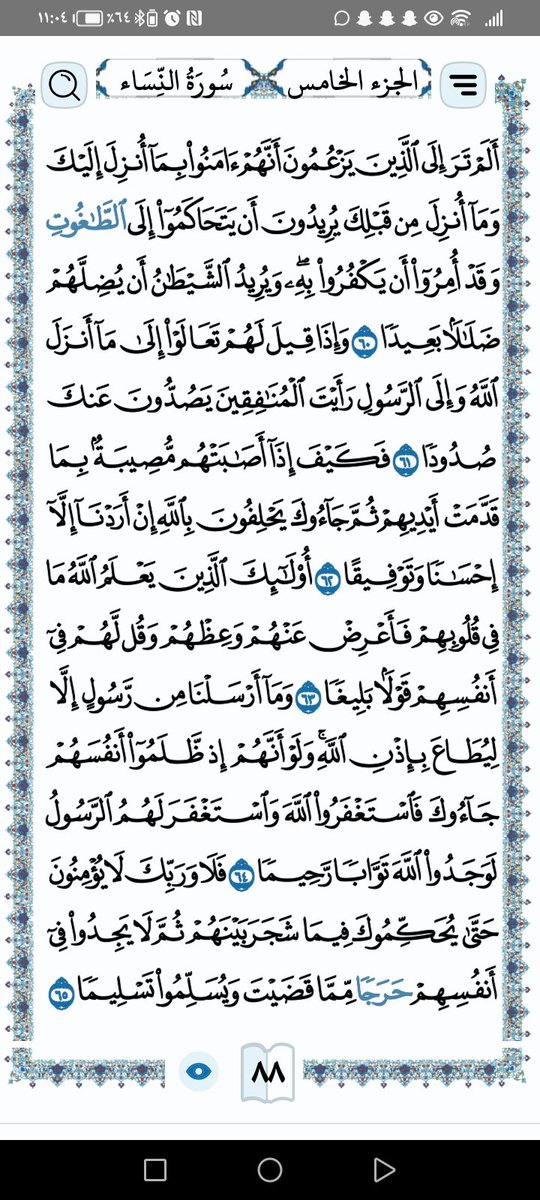 ١١:٠٤ ٪٦٤
الجزء الخامس سُورَةُ النِّسَاء
أَلَمْ تَرَ إِلَى ٱلَّذِينَ يَزْعُمُونَ أَنَّهُمْ ءَامَنُوا۟ بِمَآ أُنزِلَ إِلَيْكَ
وَمَآ أُنزِلَ مِن قَبْلِكَ يُرِيدُونَ أَن يَتَحَاكَمُوٓا۟ إِلَى ٱلطَّـٰغُوتِ
وَقَدْ أُمِرُوٓا۟ أَن يَكْفُرُوا۟ بِهِۦۖ وَيُرِيدُ ٱلشَّيْطَـٰنُ أَن يُضِلَّهُمْ
ضَلَـٰلًۢا بَعِيدًا ٦٠ وَإِذَا قِيلَ لَهُمْ تَعَالَوْا۟ إِلَىٰ مَآ أَنزَلَ
ٱللَّهُ وَإِلَى ٱلرَّسُولِ رَأَيْتَ ٱلْمُنَـٰفِقِينَ يَصُدُّونَ عَنكَ
صُدُودًا ٦١ فَكَيْفَ إِذَآ أَصَـٰبَتْهُم مُّصِيبَةٌۢ بِمَا
قَدَّمَتْ أَيْدِيهِمْ ثُمَّ جَآءُوكَ يَحْلِفُونَ بِٱللَّهِ إِنْ أَرَدْنَآ إِلَّآ
إِحْسَـٰنًا وَتَوْفِيقًا ٦٢ أُو۟لَـٰٓئِكَ ٱلَّذِينَ يَعْلَمُ ٱللَّهُ مَا
فِى قُلُوبِهِمْ فَأَعْرِضْ عَنْهُمْ وَعِظْهُمْ وَقُل لَّهُمْ فِىٓ
أَنفُسِهِمْ قَوْلًۢا بَلِيغًا ٦٣ وَمَآ أَرْسَلْنَا مِن رَّسُولٍ إِلَّا
لِيُطَاعَ بِإِذْنِ ٱللَّهِۚ وَلَوْ أَنَّهُمْ إِذ ظَّلَمُوٓا۟ أَنفُسَهُمْ
جَآءُوكَ فَٱسْتَغْفَرُوا۟ ٱللَّهَ وَٱسْتَغْفَرَ لَهُمُ ٱلرَّسُولُ
لَوَجَدُوا۟ ٱللَّهَ تَوَّابًا رَّحِيمًا ٦٤ فَلَا وَرَبِّكَ لَا يُؤْمِنُونَ
حَتَّىٰ يُحَكِّمُوكَ فِيمَا شَجَرَ بَيْنَهُمْ ثُمَّ لَا يَجِدُوا۟ فِىٓ
أَنفُسِهِمْ حَرَجًا مِّمَّا قَضَيْتَ وَيُسَلِّمُوا۟ تَسْلِيمًا ٦٥
٨٨